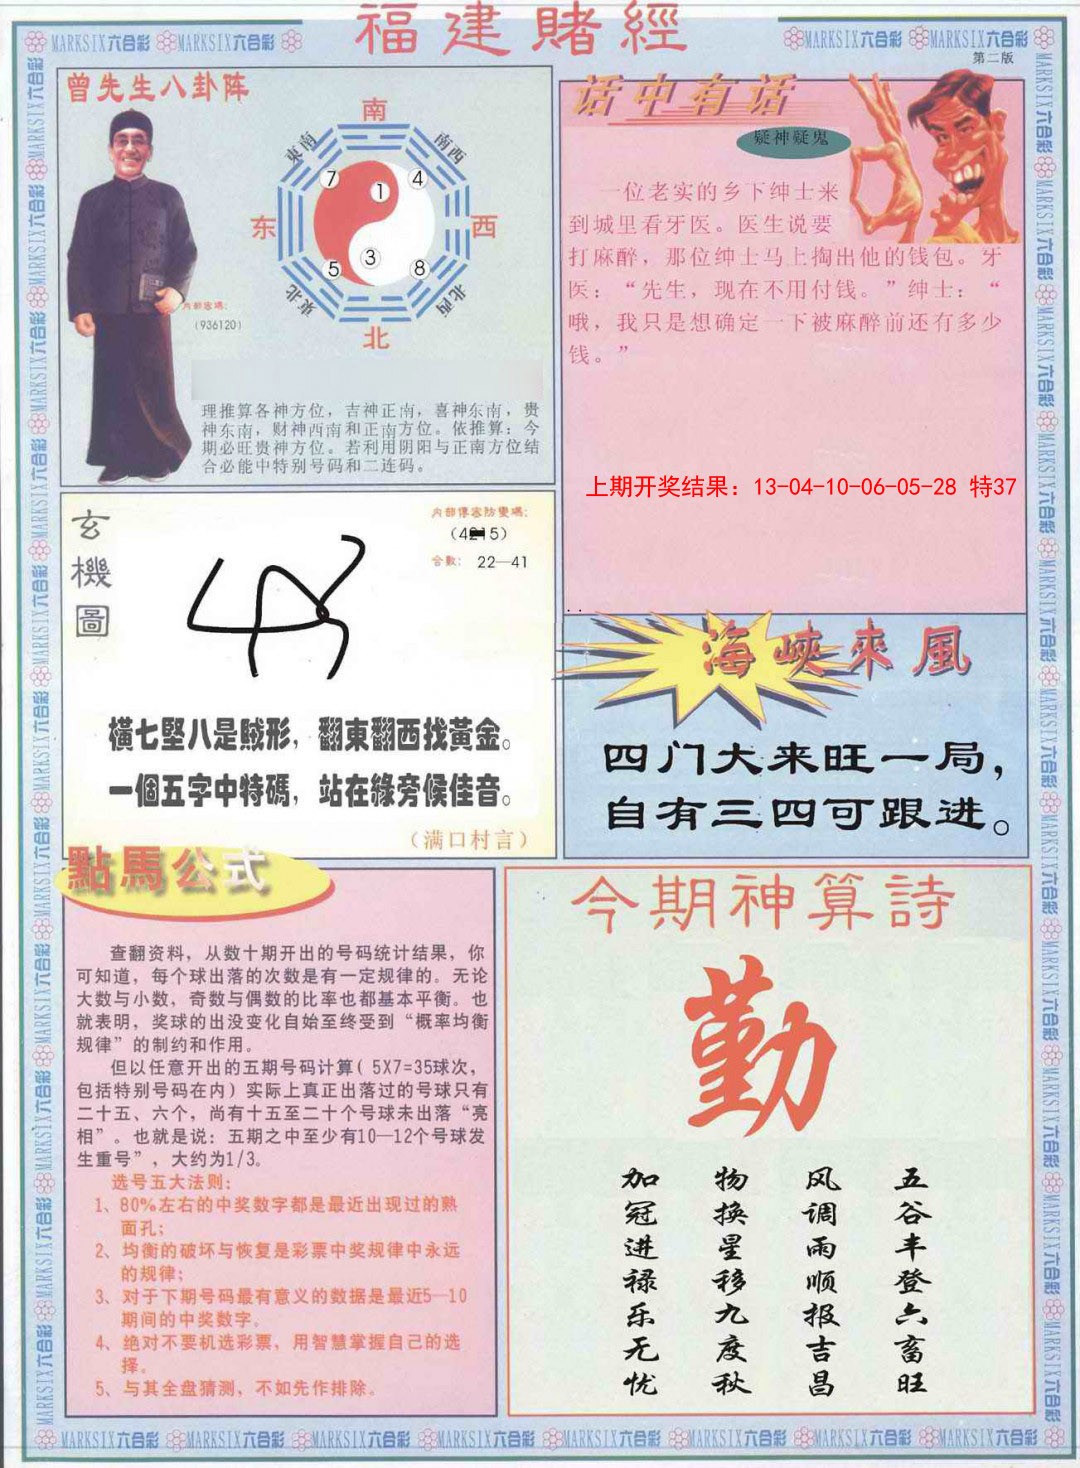 福建賭經
MARKSIX六合彩 MARKSIX六合彩
MARKSIX六合彩 MARKSIX六合彩
第二版
曾先生八卦阵
南
東南
南西
7
1
4
东
西
5
3
8
東北
北西
北
内部密碼：
(936120)
理推算各神方位，吉神正南，喜神东南，贵
神东南，财神西南和正南方位。依推算：今
期必旺贵神方位。若利用阴阳与正南方位结
合必能中特别号码和二连码。
话中有话
疑神疑鬼
一位老实的乡下绅士来
到城里看牙医。医生说要
打麻醉，那位绅士马上掏出他的钱包。牙
医：“先生，现在不用付钱。”绅士：“
哦，我只是想确定一下被麻醉前还有多少
钱。”
上期开奖结果：13-04-10-06-05-28 特37
玄機圖
内部傳密防變碼：
合數： 22—41
橫七堅八是賊形，翻東翻西找黃金。
一個五字中特碼，站在綠旁候佳音。
（满口村言）
海峽來風
四门大来旺一局，
自有三四可跟进。
點馬公式
查翻资料，从数十期开出的号码统计结果，你
可知道，每个球出落的次数是有一定规律的。无论
大数与小数，奇数与偶数的比率也都基本平衡。也
就表明，奖球的出没变化自始至终受到“概率均衡
规律”的制约和作用。
但以任意开出的五期号码计算（5X7=35球次，
包括特别号码在内）实际上真正出落过的号球只有
二十五、六个，尚有十五至二十个号球未出落“亮
相”。也就是说：五期之中至少有10—12个号球发
生重号”，大约为1/3。
选号五大法则：
1、80%左右的中奖数字都是最近出现过的熟
面孔；
2、均衡的破坏与恢复是彩票中奖规律中永远
的规律；
3、对于下期号码最有意义的数据是最近5—10
期间的中奖数字。
4、绝对不要机选彩票，用智慧掌握自己的选
择。
5、与其全盘猜测，不如先作排除。
今期神算詩
勤
加冠进禄乐无忧
物换星移九度秋
风调雨顺报吉昌
五谷丰登六畜旺
MARKSIX六合彩 MARKSIX六合彩 MARKSIX六合彩 MARKSIX六合彩 MARKSIX六合彩 MARKSIX六合彩 MARKSIX六合彩 MARKSIX六合彩